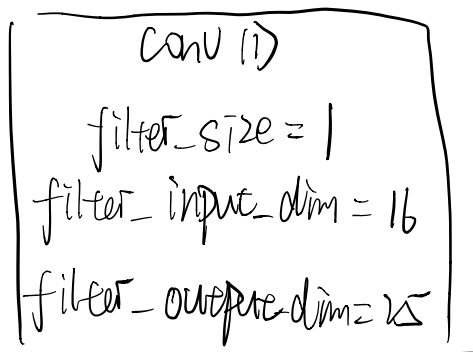 conv (1)
filter_size = 1
filter_input_dim = 16
filter_output_dim = 25